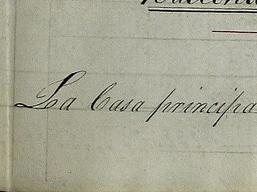 La Casa principa